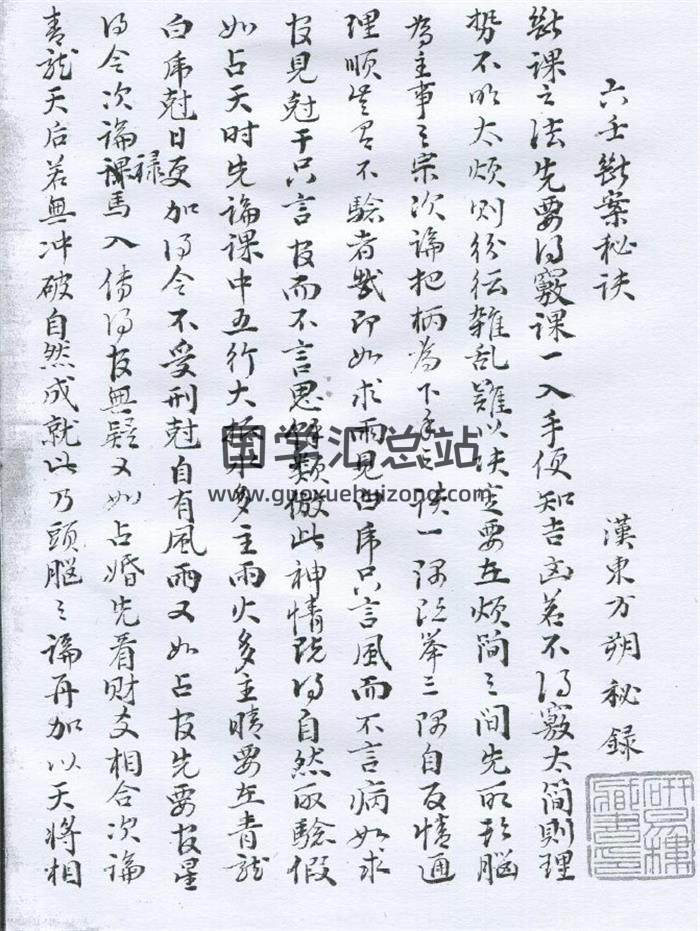 六壬斷案秘诀
漢東方朔秘錄
斷课之法先要得竅课一入手便知吉凶若不得竅太简则理
势不明太烦则纷纭雜乱難以决定要在烦简之间先明头脑
為主事之宗次論把柄為下手之诀一隅既举三隅自反情通
理順岂有不驗者哉即如求雨見白虎只言風而不言病如求
官見尅干只言官而不言思 類倣此神情既得自然取驗假
如占天时先論课中五行大 水多主雨火多主晴要在青龙
白虎尅日更加得令不受刑尅自有風雨又如占官先要官星
得令次論禄馬入传得官無疑又如占婚先看财爻相合次論
青龙天后若無冲破自然成就此乃頭腦之論再加以天将相
国学汇总站
www.guoxuehuizong.com